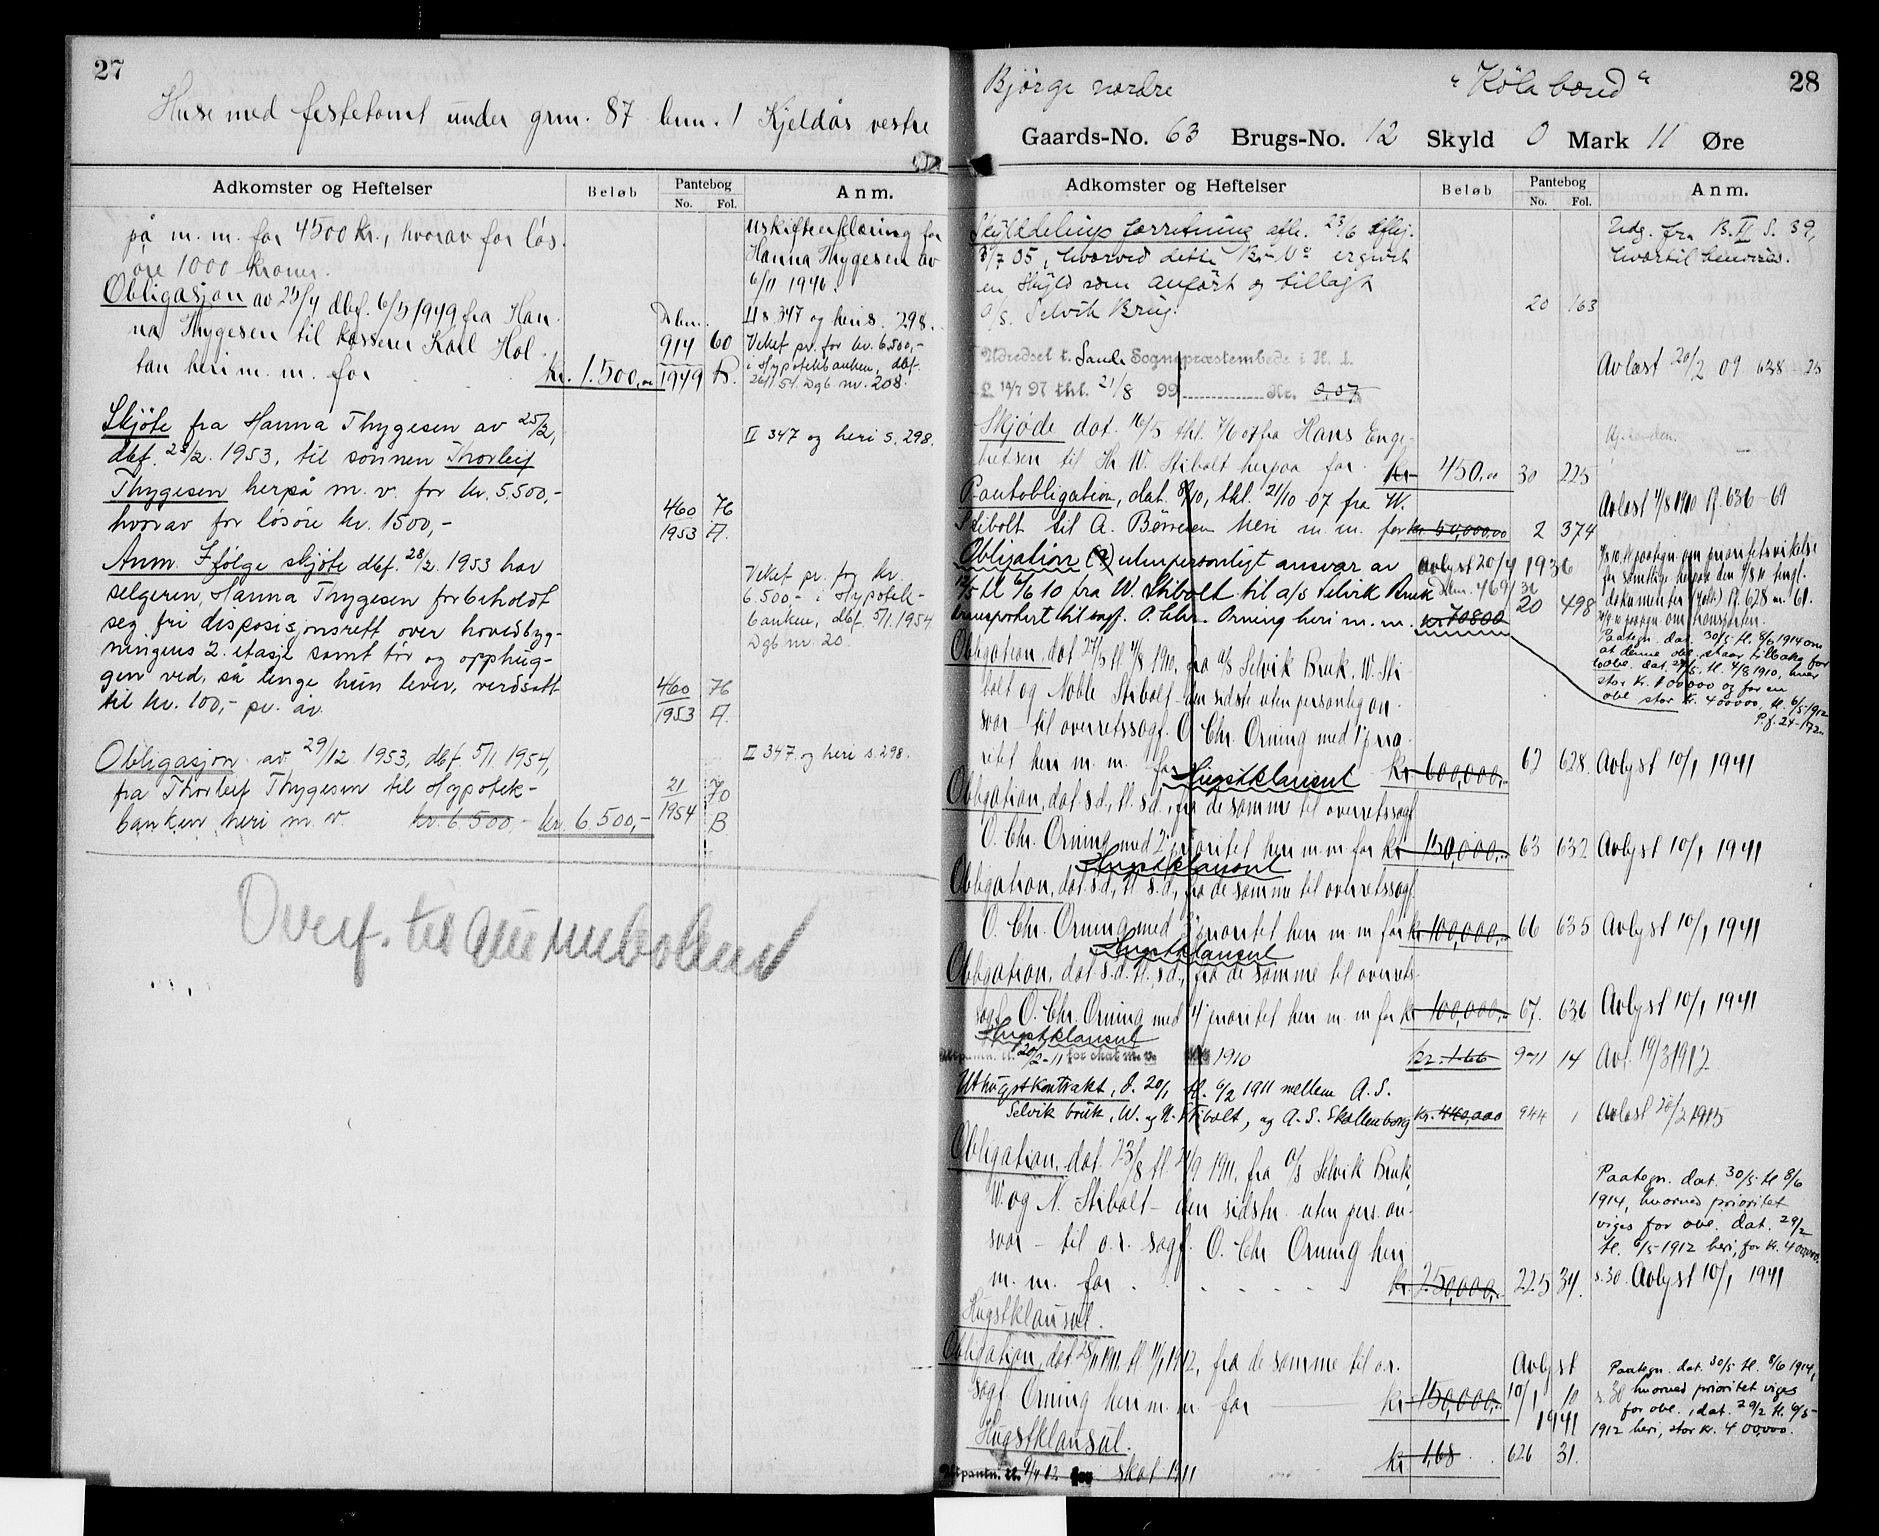 27
Huse med festetomt under grn. 87 bnr. 1 Kjeldås vestre
Adkomster og Heftelser
Beløb
Pantebog
No. Fol.
Anm.
på m. m. for 4500 kr., hvorav for løs-
øre 1000 kroner.
Uskifteerklæring for
Hanna Thygesen av
6/11 1946.
Obligasjon av 25/4 dbf. 6/5 1949 fra Han-
na Thygesen til kasserer Karl Hol-
tan heri m. m. for kr. 1.500,00
Dbn. 914 1949 60 B.
II s. 347 og heri s. 298.
Veket pr. for kr. 6.500,-
i Hypotekbanken, dbf.
Dgb nr. 208.
Skjøte fra Hanna Thygesen av 25/2,
dbf. 28/2. 1953, til sønnen Thorleif
Thygesen herpå m. v. for kr. 5.500,-
hvorav for løsøre kr. 1500,-
460 1953 76 A.
II 347 og heri s. 298.
Anm. Ifølge skjøte dbf. 28/2. 1953 har
selgeren, Hanna Thygesen forbeholdt
seg fri disposisjonsrett over hovedbyg-
ningens 2. etasje samt tør og opphug-
gen ved, så lenge hun lever, verdsatt
til kr. 100,- pr. år.
460 1953 76 A.
Veket pr. for kr.
6.500,- i Hypotek-
banken, dbf. 5/1. 1954
Dgb nr. 20.
Obligasjon av 29/12 1953, dbf. 5/1 1954,
fra Thorleif Thygesen til Hypotek-
banken heri m. v. kr. 6.500,- kr. 6.500,-
21 1954 70 B
II 347 og heri s. 298.
28
Bjørge nordre
Gaards-No. 63 Brugs-No. 12 Skyld 0 Mark 11 Øre
Adkomster og Heftelser
Beløb
Pantebog
No. Fol.
Anm.
Skylddelingsforretning afh. 23/6 afhj.
3/7 05, hvorved dette Br. No er givet
en Skyld som anført og tillagt
a/s. Selvik Brug.
20 163
Udg. fra B. II S. 39,
hvortil henvises.
Udredsel t. Sande Sognepræstembede i H. t.
L 14/7 97 thl. 21/8 99 Kr. 0,07
Avlæst 20/2 09 638 - 25
Skjøde dat. 16/5 thl. 7/6 07 fra Hans Enge-
bretsen til Hr W. Stibolt herpaa for kr 450,00 30 225
Pantobligation, dat. 8/10, thl. 21/10 07 fra W.
Stibolt til A. Børresen heri m. m. for kr 50,000.00 2 374
Avlæst 4/8 1910 Pf. 636 - 69
Obligation uten personligt ansvar av
12/5 tl 6/6 10 fra W. Stibolt til a/s Selvik Bruk
transportert til sagf. O. Chr. Orning heri m. m. kr 70800 20 498
Avlyst 20/4 1936
Dbn. 469/36
Paategn. dat. 30/5 tl. 8/6 1914 om
at denne obl. staar tilbake for
obl. dat. 27/5 tl. 4/8 1910, hver
stor kr. 100000 og for en
obl. stor kr. 400000, tl. 6/5-1912
P.f. 24-172
Obligation, dat 27/5 tl 4/8 1910, fra a/s Selvik Bruk, W. Sti-
bolt og Noble Stibolt - den sidste uten personlig an-
svar - til overretssagf. O. Chr. Orning med 1' prio-
ritet heri m. m. for kr 600,000,- 62 628. Avlyst 10/1 1941
Hugstklausul
Obligation, dat s.d., tl. s.d., fra de samme til overretssagf
O. Chr. Orning med 2' prioritet heri m m for kr 150,000,- 63 632 Avlyst 10/1 1941
Hugstklausul
Obligation, dat. s.d., tl s.d., fra de samme til overretssagf
O. Chr. Orning med 3' prioritet heri m m for kr 100,000,- 66 635 Avlyst 10/1 1941
Hugstklausul
Obligation, dat s.d. tl. s.d., fra de samme til overrets-
sagf. O. Chr. Orning med 4' prioritet heri m. m for kr 100,000,- 67. 636 Avlyst 10/1 1941
Hugstklausul
20/2-11 for skat m. v. 1910 kr. 1.66 9-11 14 Avl. 19/3 1912
Uthugstkontrakt, d. 20/1, tl. 6/2 1911 mellem A.S.
Selvik bruk, W. og N. Stibolt, og A. S. Skollenborg kr. 440,000 944 1 Avlæst 20/2 1915
Obligation, dat. 23/8 tl. 21/9 1911, fra a/s Selvik Bruk,
W. og N. Stibolt - den sidste uten pers. an-
svar - til o.r. sagf. O. Chr Orning heri
m. m. for kr. 250,000,- 225 34.
Paategn. dat. 30/5 tl 8/6
1914, hvorved prioritet
viges for obl. dat. 29/2
tl. 6/5-1912 heri, for kr. 400000.
s. 30. Avlyst 10/1 1941
Hugstklausul.
Obligation, dat 28/11 1911. tl 4/1 1912, fra de samme til o.r.
sagf. Orning heri m. m for kr 150,000,-
Avlyst 10/1 1941 10
Paategn. dat. 30/5 tl. 8/6 1914,
s. 30 hvorved prioritet viges
for obl., dat. 29/2 tl. 6/5-
1912 heri, stor kr. 400,000.
Hugstklausul.
Utpantn. tl. 9/4 12 for skat 1911 kr 1,68 626 31.